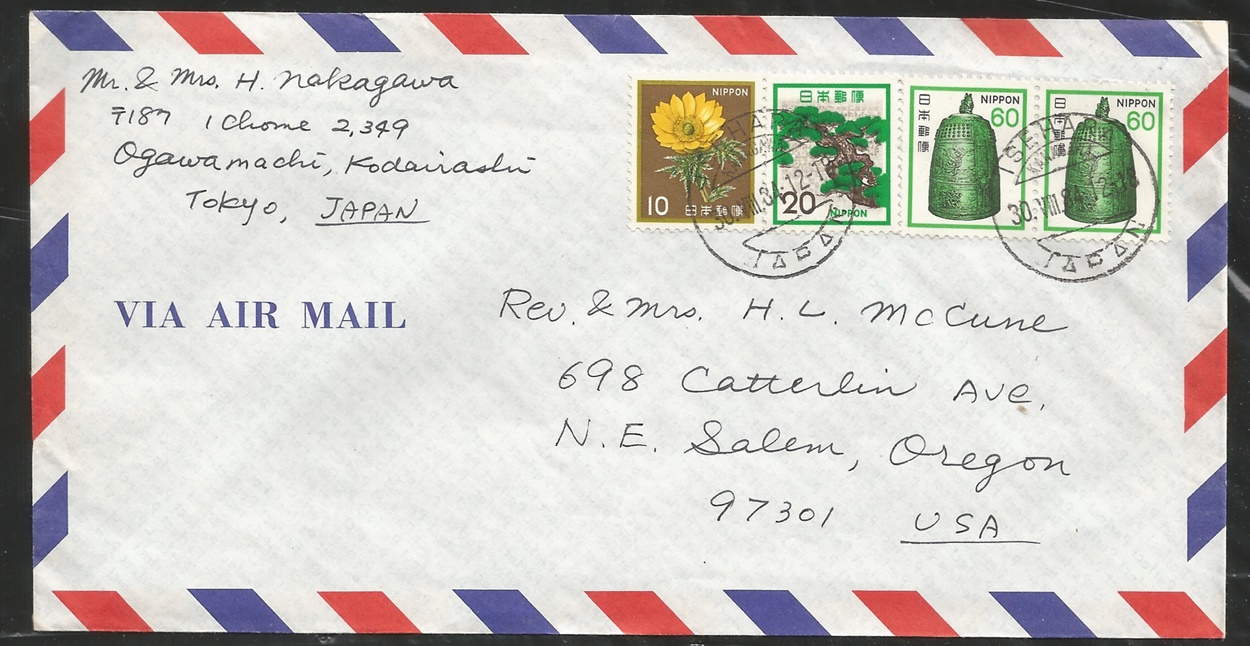 Mr. & Mrs. H. Nakagawa
〒187 1 Chome 2,349
Ogawamachi, Kodairashi
Tokyo, JAPAN
NIPPON
10 日本郵便
日本郵便
20 NIPPON
日本郵便 NIPPON
60
日本郵便 NIPPON
60
ISEHARA
30.VIII.84.12-18
JAPAN
ISEHARA
30.VIII.84.12-18
JAPAN
VIA AIR MAIL
Rev. & Mrs. H. L. McCune
698 Catterlin Ave.
N.E. Salem, Oregon
97301 USA